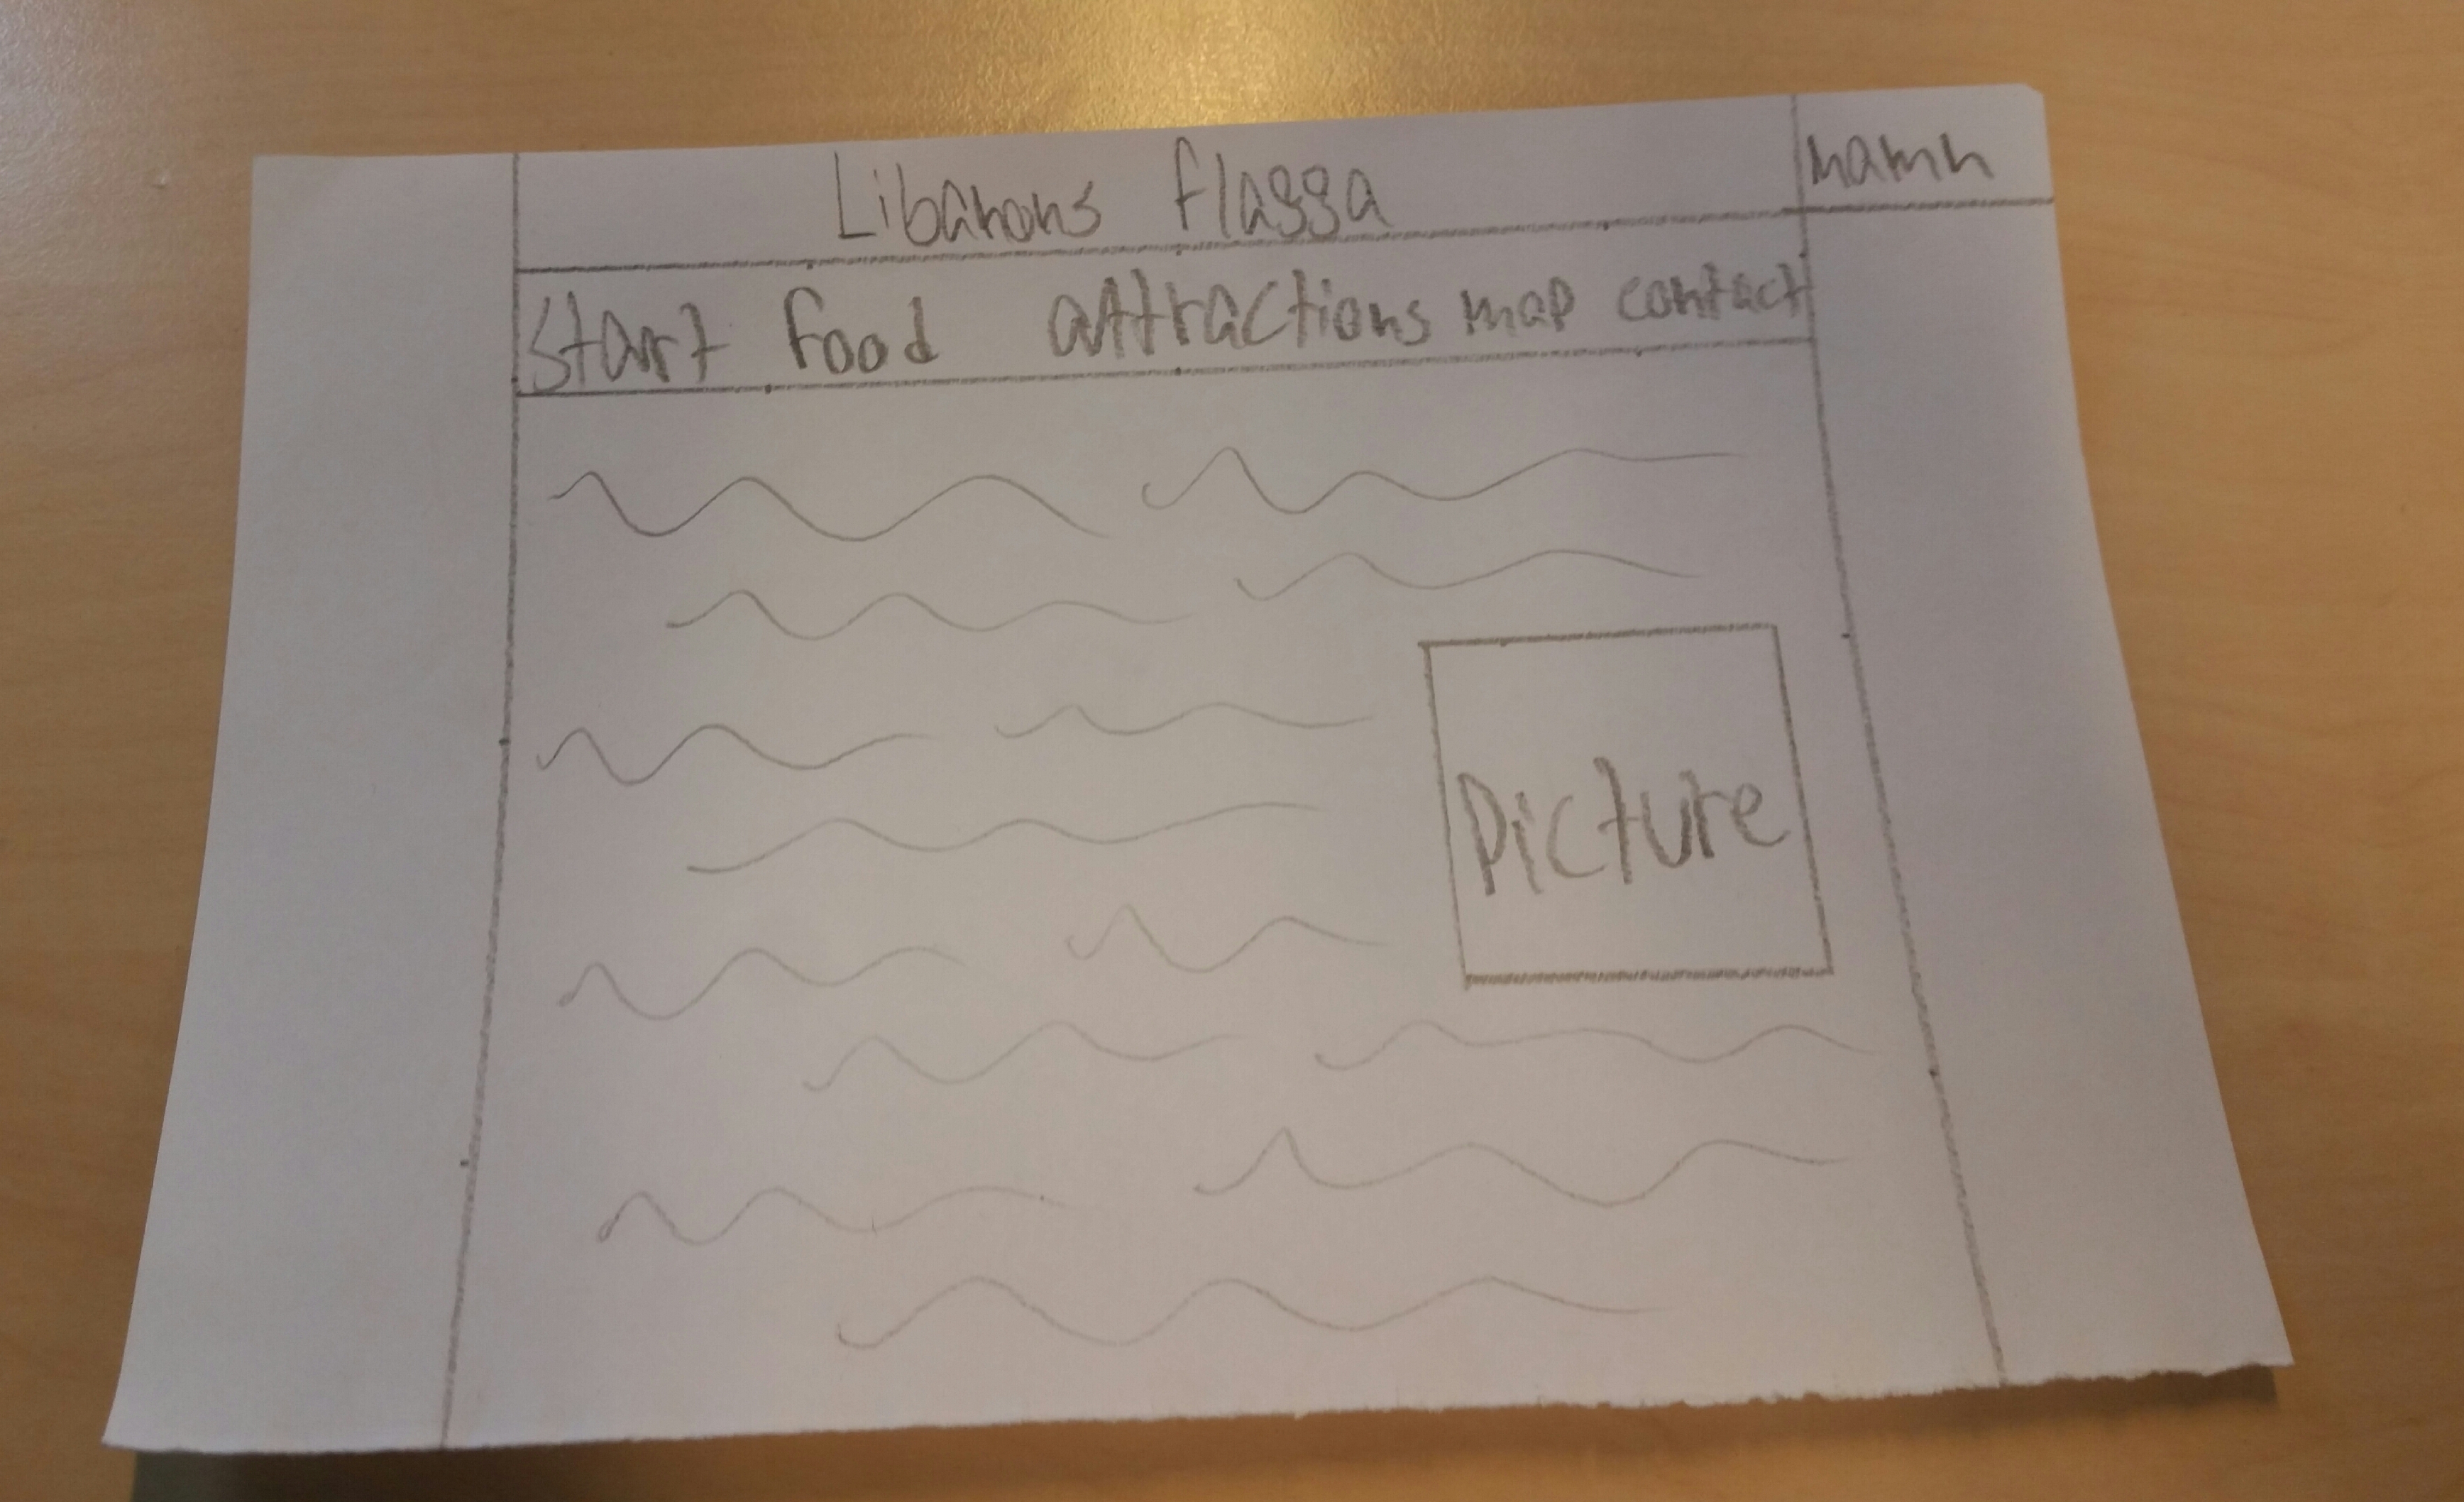 Libanons flagga
namn
Start food attractions map contact
Picture